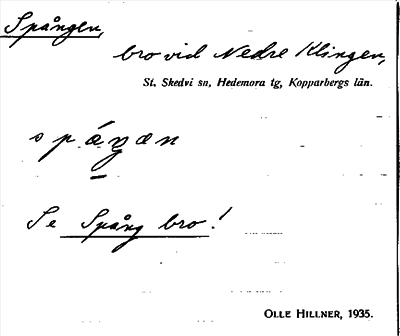 Spången,
bro vid Nedre Klingen,
St. Skedvi sn, Hedemora tg, Kopparbergs län.
spáŋæn
Se Spång bro!
OLLE HILLNER, 1935.